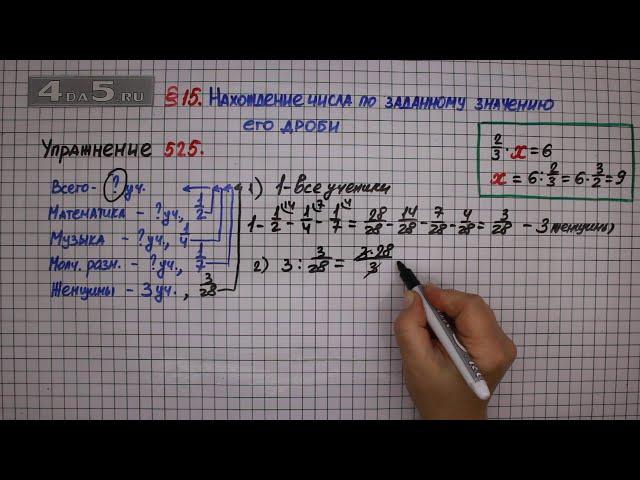 4DA5.RU
§ 15. Нахождение числа по заданному значению
его дроби
Упражнение 525.
2/3 · x = 6
x = 6 : 2/3 = 6 · 3/2 = 9
Всего - ? уч.
Математика - ? уч., 1/2
Музыка - ? уч., 1/4
Молч. разм. - ? уч., 1/7
Женщины - 3 уч., 3/28
1) 1 - Все ученики
1 - 1/2 \14 - 1/4 \7 - 1/7 \4 = 28/28 - 14/28 - 7/28 - 4/28 = 3/28 - 3 женщины
2) 3 : 3/28 = 3·28/3